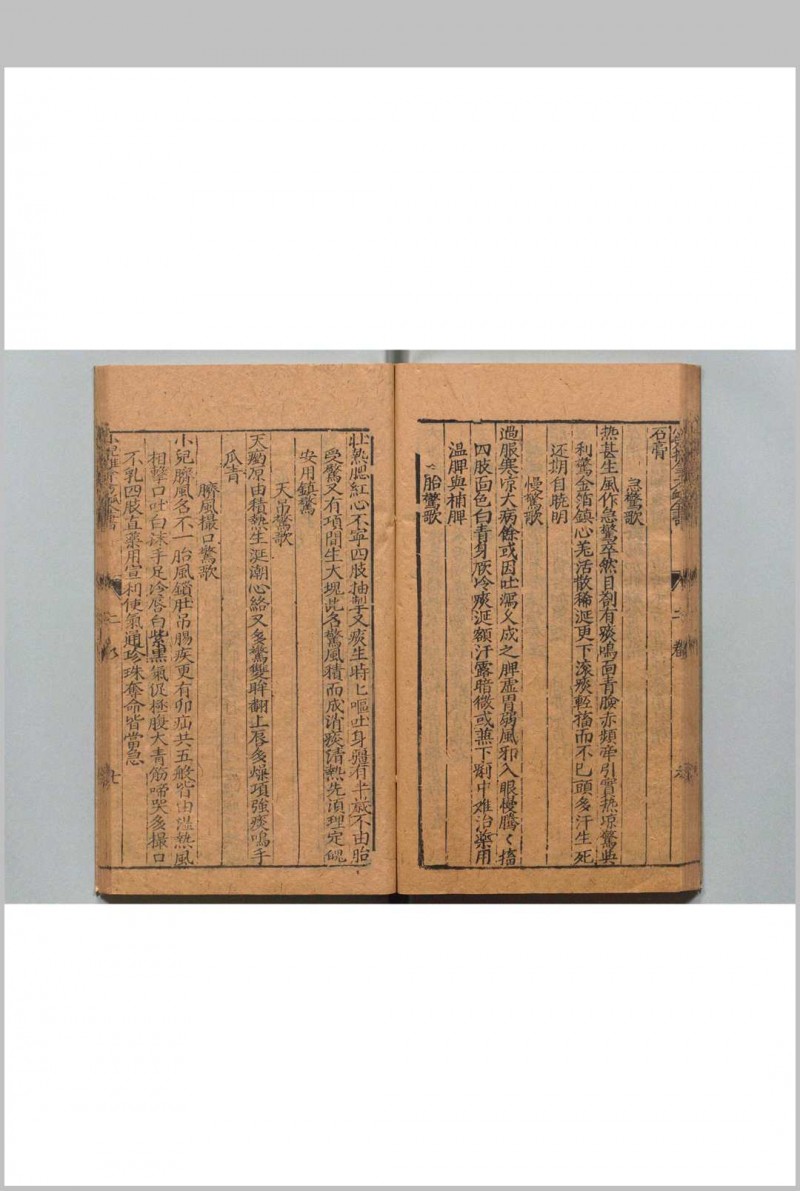 石膏
急驚歌
熱甚生風作急驚卒然目劄有痰鳴面青臉赤頻牽引實熱凉驚與
利驚金箔鎮心羌活散稀涎更下滚痰輕搐而不已頭多汗生死
还期自曉明
慢驚歌
過服寒凉大病餘或因吐瀉久成之脾虛胃弱風邪入眼慢騰〻搐
四肢面色白青身厥冷痰涎額汗露睛微或燕下
中难治藥用
溫脾與補脾
胎驚歌
壯熱腮紅心不寧四肢抽掣又痰生時〻嘔吐身彊有半歲不由胎
受驚又有項間生大塊此名驚風積而成消痰清熱先湏理定魄
安用鎮驚
天吊驚歌
天痫原由積熱生涎潮心絡又多驚雙眸翻上唇多燥項強痰鳴手
瓜青
臍風撮口驚歌
小兒臍風名不一胎風鎖肚吊腸疾更有卯疝共五般皆由
熱風
相擊口吐白沫手足冷唇白紫黑氣促極腹大青筋啼哭多撮口
不乳四肢直藥用宣利使氣通珍珠奪命皆當急
二
七
二
卷